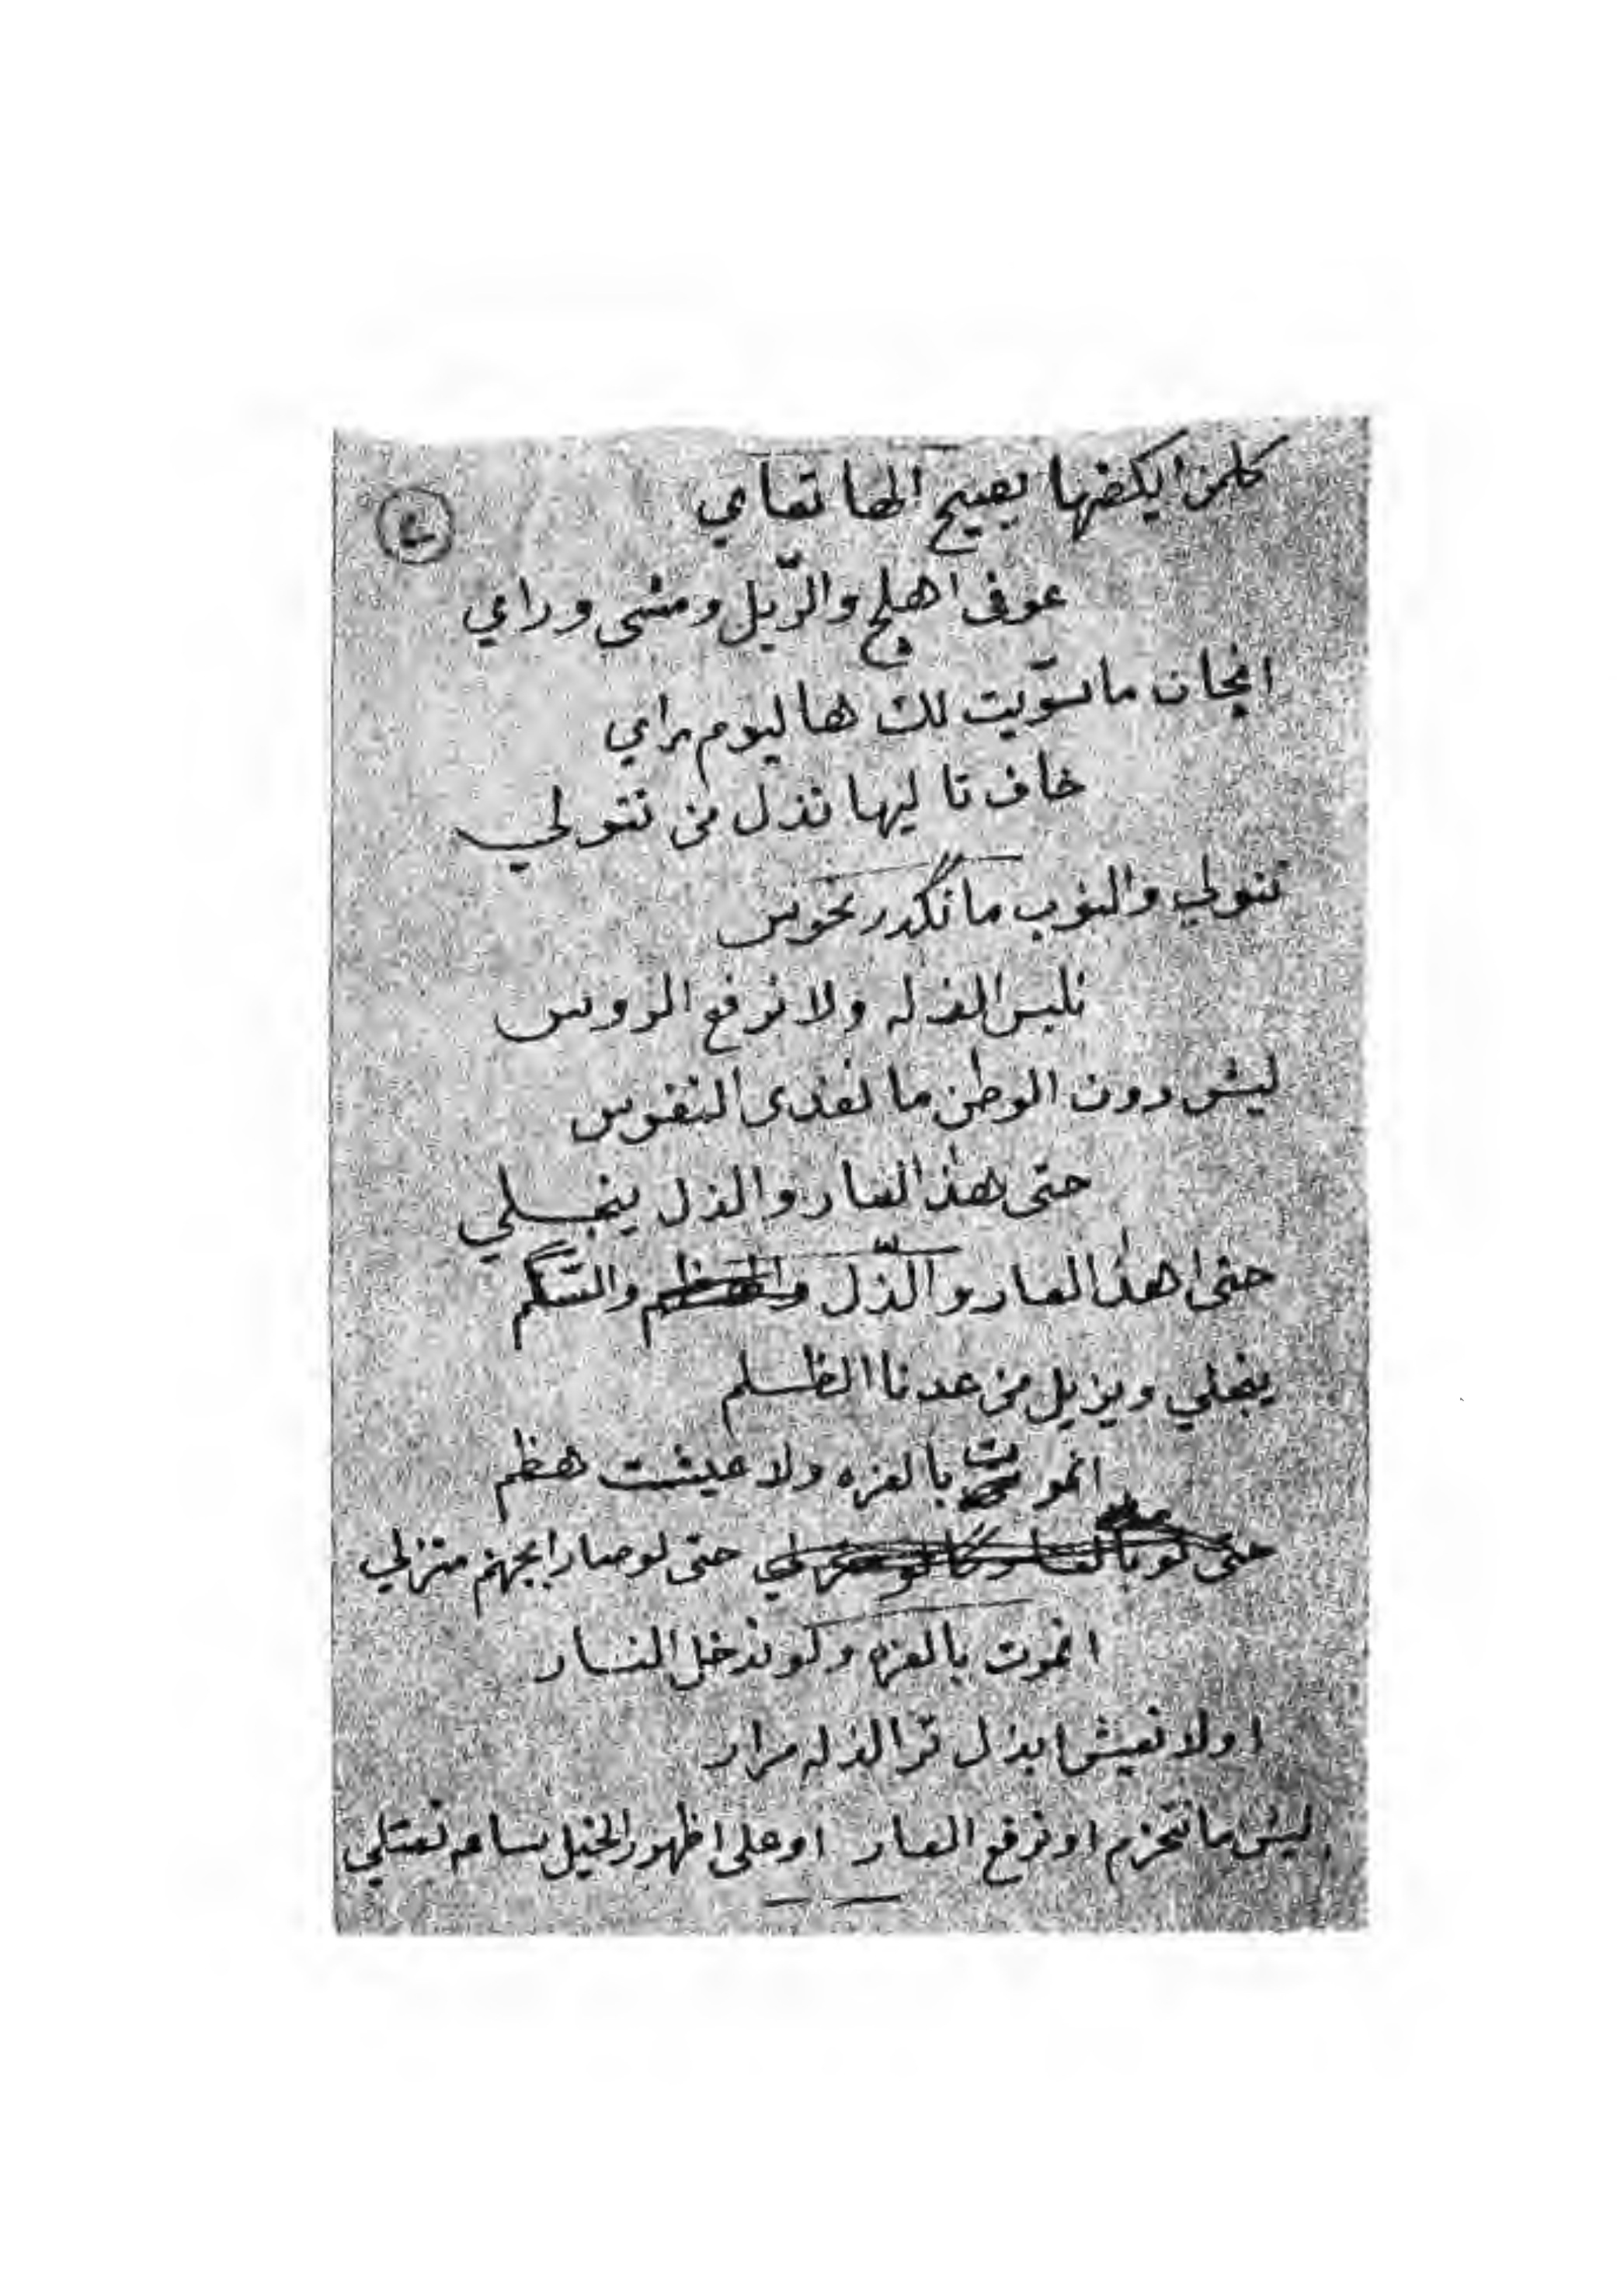 كلمن ايكضها يصيح الها تعاي
٤
عوفي اهلچ والرّيل ومشي وراي
انچان ما سوّيت لك هاليوم راي
خاف تاليها نذل من نتولي
نتولي والنوب ما نگدر نحوس
نلبس الذله ولا نرفع الروس
ليش دون الوطن ما نفدى النفوس
حتى هذا العار والذل ينجلي
حتى اهذا العار والذّل والسّگم
ينجلي ويزيل من عدنا الظلم
انموت بالعزه ولا عيشت هظم
حتى لو صار ابجهنم منزلي
انموت بالعزه ولو ندخل النار
اولا نعيش ابذل ترا الذله مرار
ليش ما نتحزم اونرفع العار اوعلى اظهور الخيل ساعه نعتلي